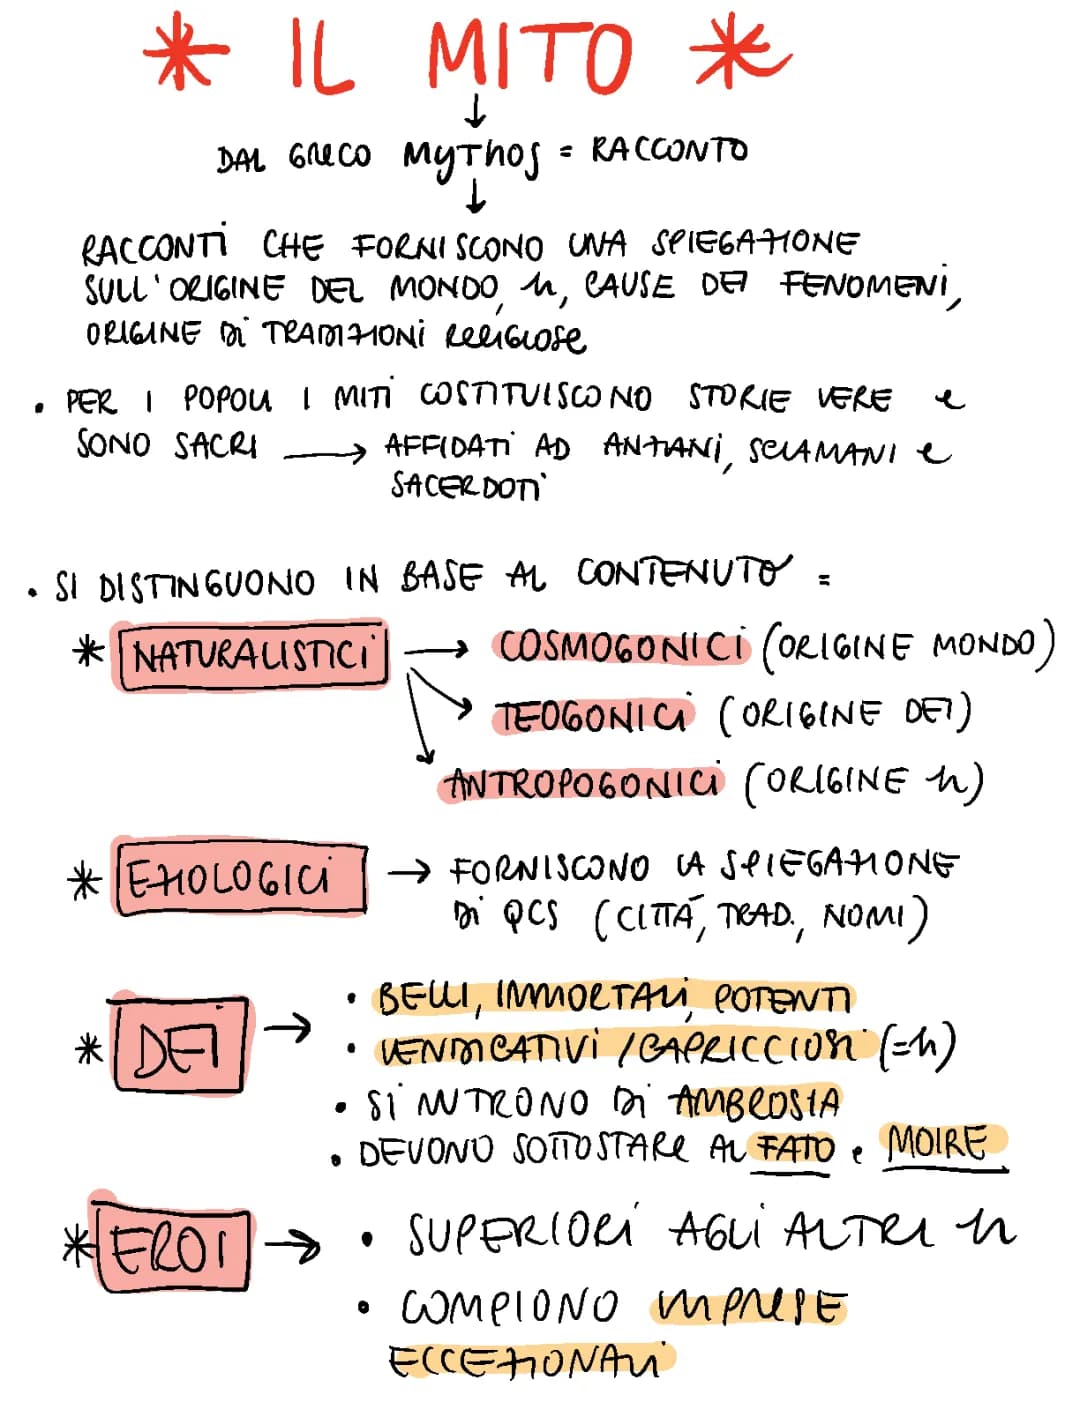 * IL MITO *
↓
DAL GRECO MyThos = RACCONTO
↓
RACCONTI CHE FORNISCONO UNA SPIEGAZIONE
SULL'ORIGINE DEL MONDO, h, CAUSE DEI FENOMENI,
ORIGINE DI TRADIZIONI RELIGIOSE
• PER I POPOLI I MITI COSTITUISCONO STORIE VERE e
SONO SACRI → AFFIDATI AD ANZIANI, SCIAMANI e
SACERDOTI
• SI DISTINGUONO IN BASE AL CONTENUTO =
* NATURALISTICI → COSMOGONICI (ORIGINE MONDO)
TEOGONICI (ORIGINE DEI)
ANTROPOGONICI (ORIGINE h)
* EZIOLOGICI → FORNISCONO LA SPIEGAZIONE
DI QCS (CITTÁ, TRAD., NOMI)
* DEI → • BELLI, IMMORTALI, POTENTI
• VENDICATIVI / CAPRICCIOSI (=h)
• SI NUTRONO DI AMBROSIA
• DEVONO SOTTOSTARE AL FATO e MOIRE
* EROI → • SUPERIORI AGLI ALTRI h
• COMPIONO IMPRESE
ECCEZIONALI